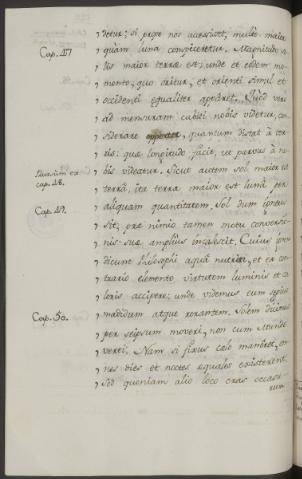 detur; si prope nos accessit, multo maior
Cap. 47
quam luna conspiceretur. Magnitudo so
lis maior terræ est, unde et eodem mo
mento, quo oritur, et orienti simul et
occidenti equaliter apparet. Quod vero
ad mensuram cubiti nobis videtur, con
siderare oportet, quantum distat a ter
ris: quæ longitudo facit, ut parvus a no
bis videatur. Sicut autem sol maior est
cap. 48.
terra, ita terra maior est luna per
Cap. 49.
aliquam quantitatem. Sol dum igneus
sit, præ nimio tamen motu conversio
nis suæ amplius incalescit. Cuius
dicunt Philosophi aqua nutriri, et ex con
trario elemento virtutem luminis et ca
loris accipere; unde videmus eum sepius
madidum atque rorantem. Solem dicimus
Cap. 50.
per seipsum moveri, non cum Mundo
verti. Nam si fixus celo maneret, om
nes dies et noctes equales existerent.
Sed quoniam alio loco cras occasu
rum